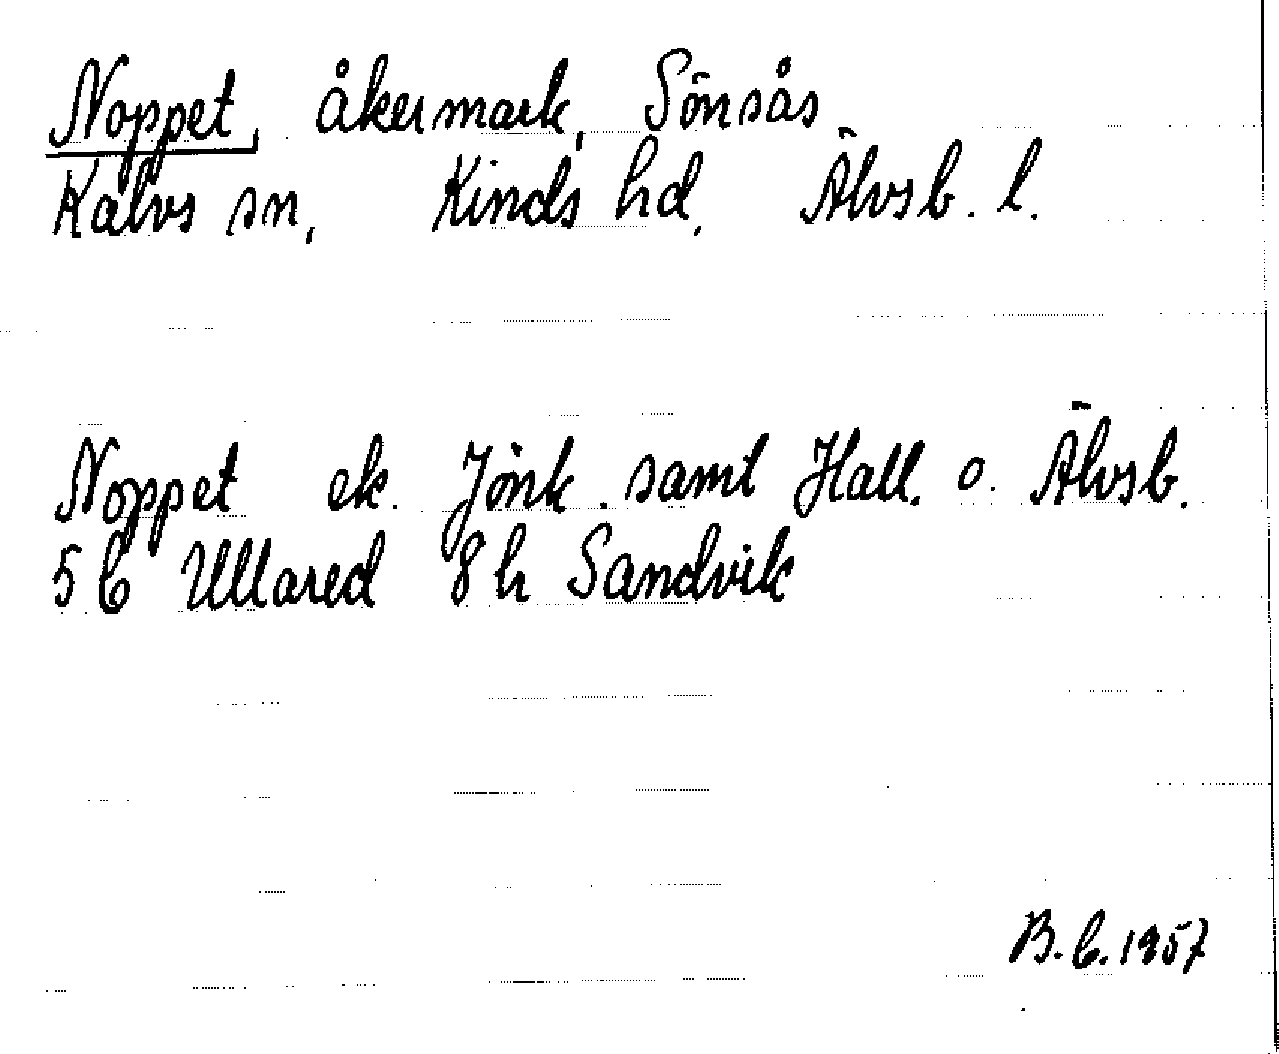 Noppet, åkermark, Sönsås
Kalvs sn, Kinds hd, Älvsb. l.
Noppet ek. Jönk. samt Hall. o. Älvsb.
5 C Ullared 8 h Sandvik
B. C. 1957